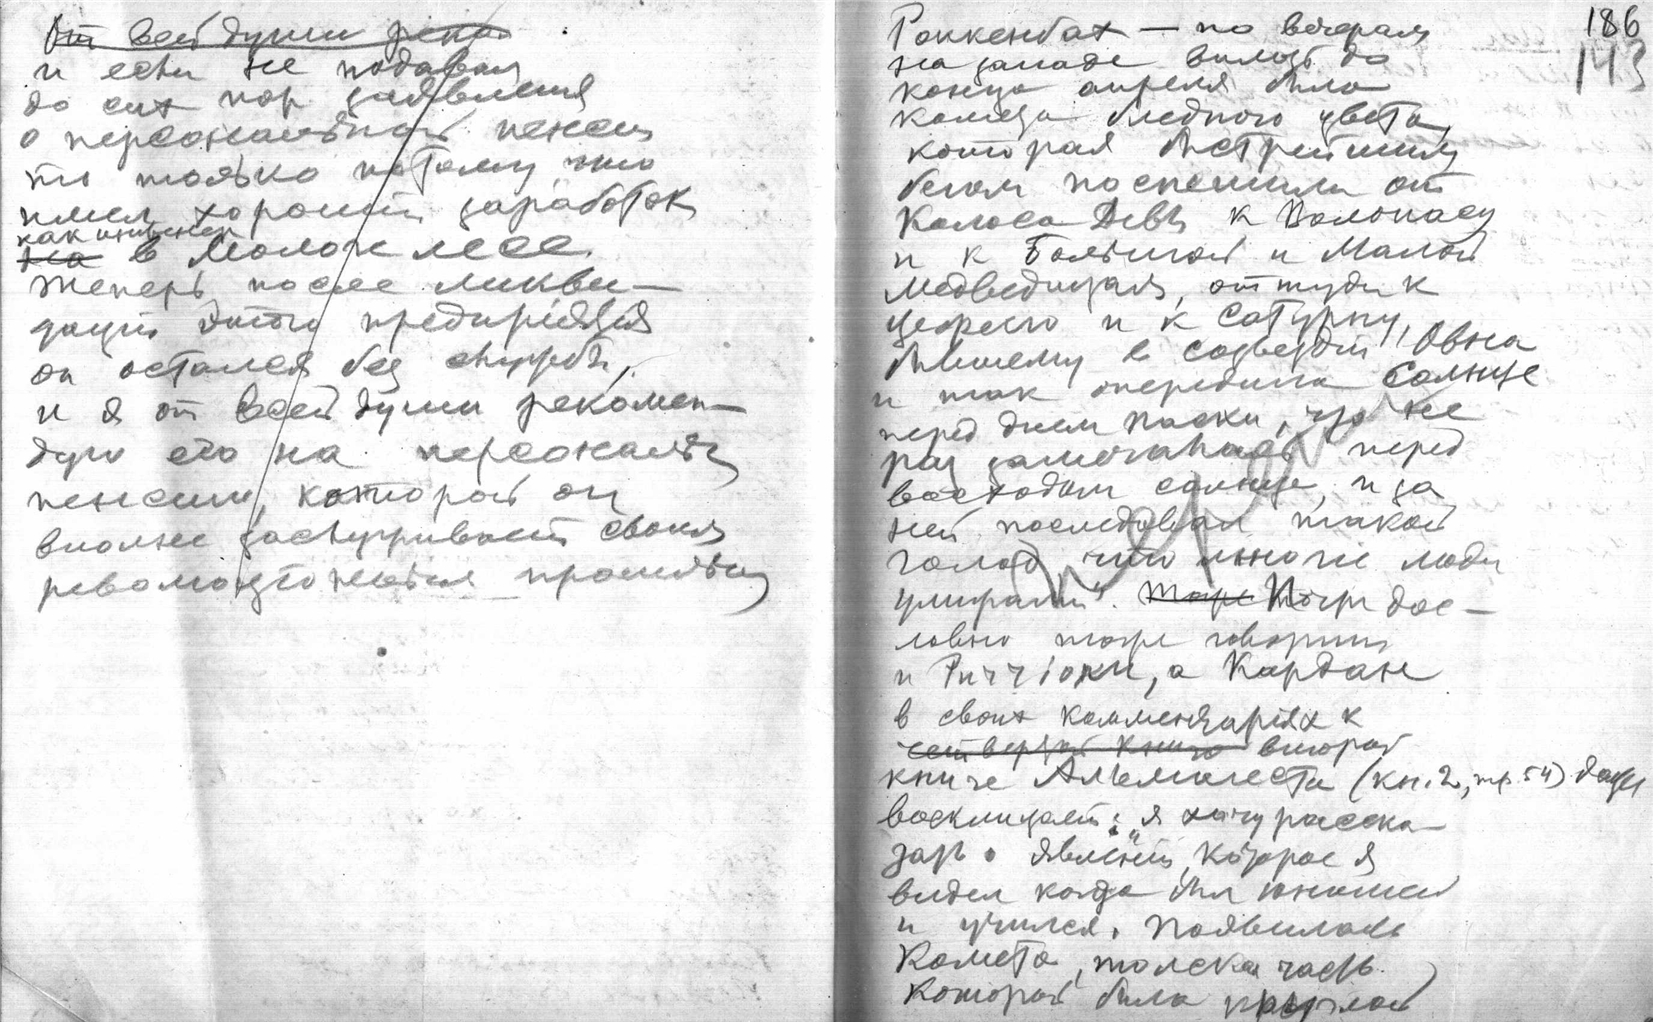 От всей души реко
и если не подавал
до сих пор заявления
о персональной пенсии
то только потому, что
имел хороший заработок
как инженер
на в Молокмесе.
Теперь после ликви-
дации этого предприятия
он остался без службы,
и я от всей души рекомен-
дую его на персональн
пенсию, которой он
вполне заслуживает своим
революционным прошлым
186
143
Роккенбах — по вечерам
на западе вплоть до
конца апреля была
комета бледного цвета,
которая быстрейшим
бегом поспешила от
Колоса Девы к Волопасу
и к Большой и Малой
Медведицам, оттуда к
Цефею и к Сатурну,
бывшему в созвездии Овна
и так опередила Солнце
перед днем пасхи, что не
раз замечалась перед
восходом солнца, и за
ней последовал такой
голод, что многие люди
умирали". Тоже Почти дос-
ловно тоже говорит
и Риччіоли, а Кардан
в своих комментаріях к
четвертой книге второй
книге Альмагеста (кн. 2, тр. 54) даже
восклицает: "я хочу расска-
зать о явлении, которое я
видел когда был юношей
и учился. Появилась
Комета, толская часть
которой была